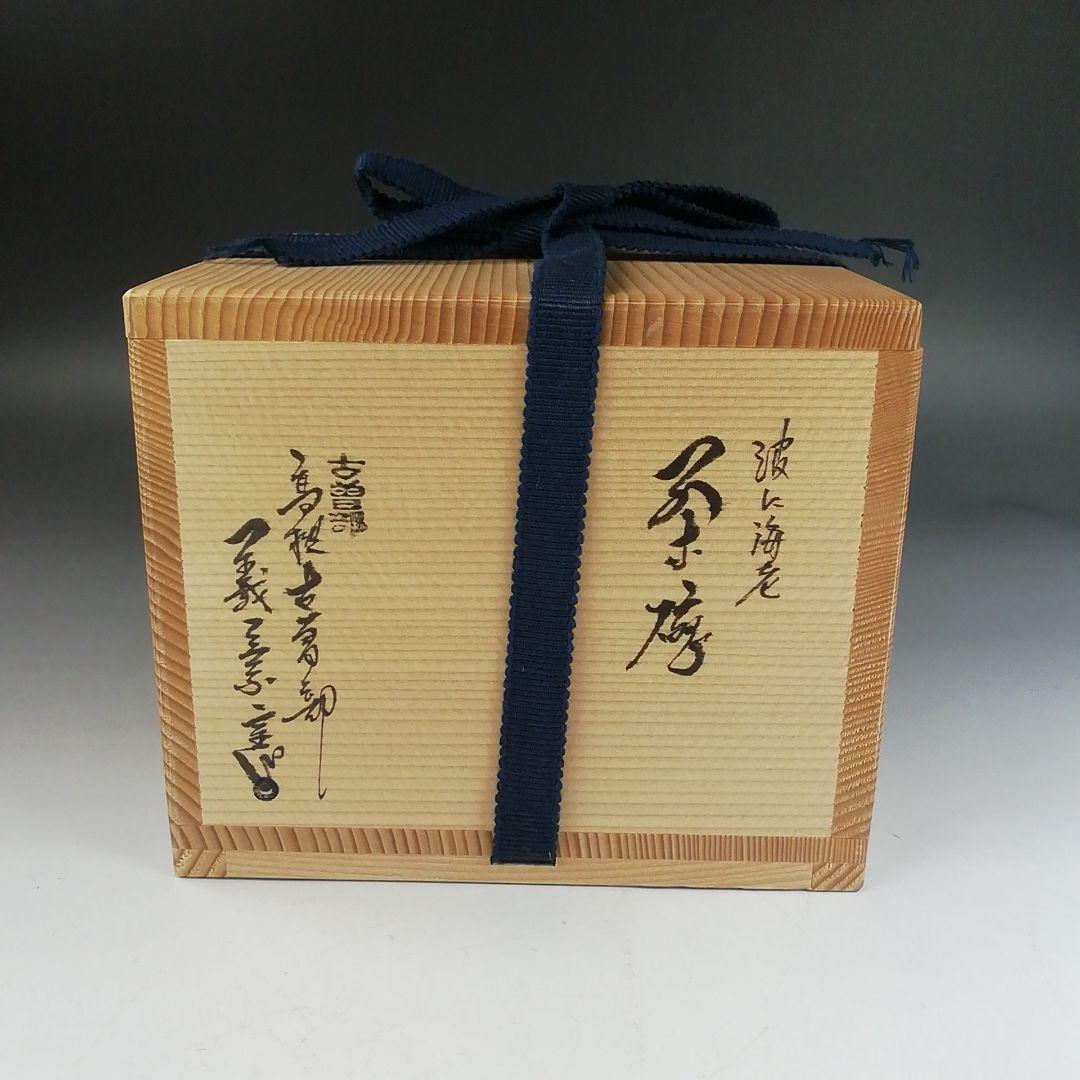 波に海老
茶碗
古曽部
高槻古曽部
義崇窯